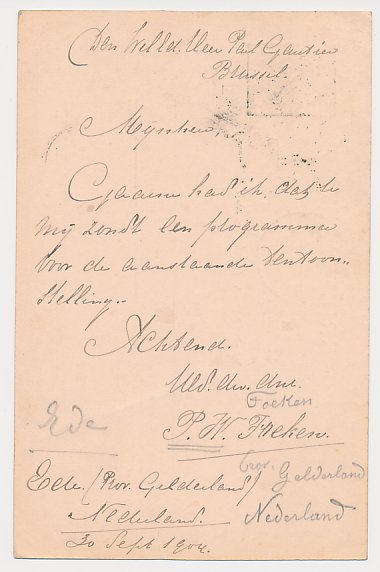 Den WelEd. Heer Paul Gautier
Brussel.
Mijnheer,
Gaarne had ik, dat u
mij zondt een programma
voor de aanstaande tentoon-
stelling.-
Achtend.
UEd. dw. dnr.
Foeken
P. W. Foeken.
Ede
Prov. Gelderland
Ede. (Prov. Gelderland)
Nederland
Nederland.
30 Sept 1904.